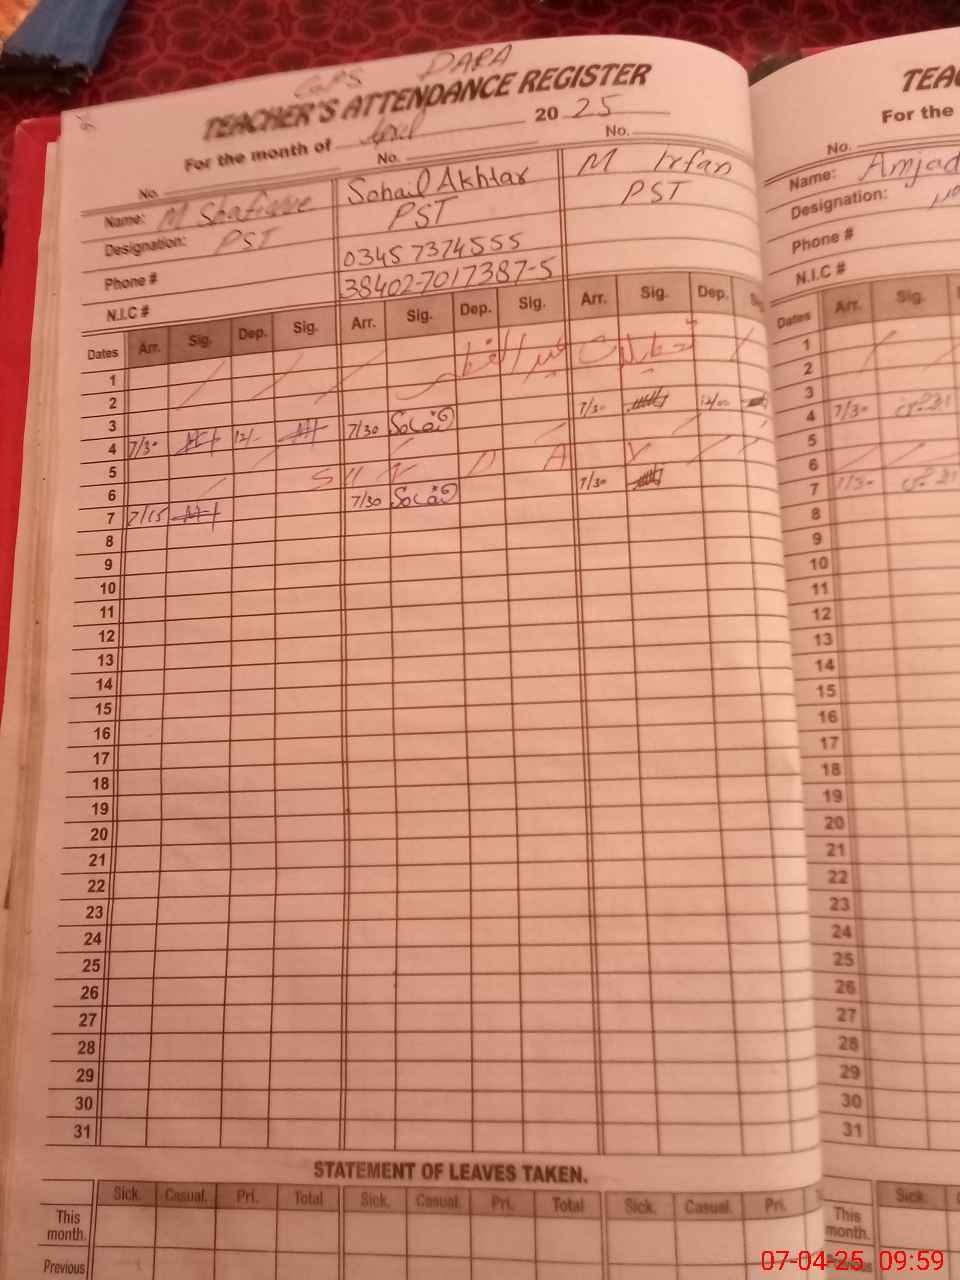 GPS DAPA
TEACHER'S ATTENDANCE REGISTER
For the month of April 2025
No. No. No.
Name: M Shafique Sohail Akhtar M Irfan
Designation: PST PST PST
Phone # 03457374555
N.I.C # 38402-7017387-5
Dates Arr. Sig. Dep. Sig. Arr. Sig. Dep. Sig. Arr. Sig. Dep.
1 تعطیلات عید الفطر
2
3
4 7/30 12/- 7/30 7/30 12/00
5
6 SUN DAY
7 7/15 7/30 7/30
8
9
10
11
12
13
14
15
16
17
18
19
20
21
22
23
24
25
26
27
28
29
30
31
STATEMENT OF LEAVES TAKEN.
Sick. Casual. Pri. Total Sick. Casual. Pri. Total Sick. Casual. Pri.
This month.
Previous
For the
No.
Name: Amjad
Designation:
Phone #
N.I.C #
Dates Arr. Sig.
1
2
3
4 7/30
5
6
7 7/30
8
9
10
11
12
13
14
15
16
17
18
19
20
21
22
23
24
25
26
27
28
29
30
31
Sick.
This month.
Previous
07-04-25 09:59